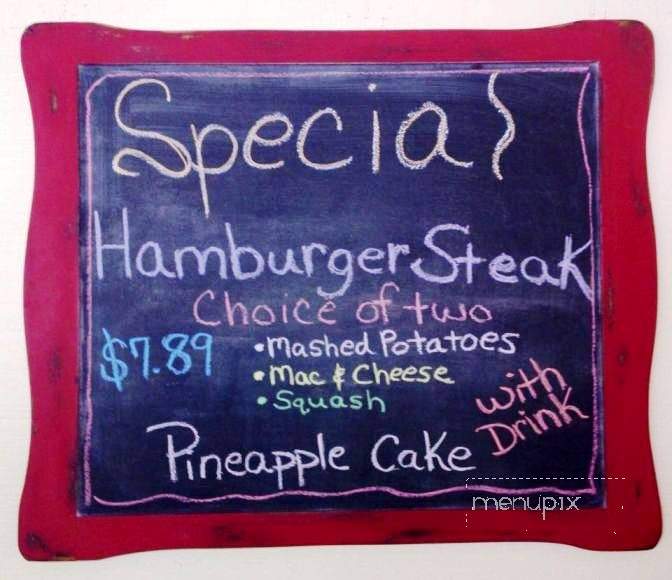 Special
Hamburger Steak
Choice of two
$7.89
• Mashed Potatoes
• Mac & Cheese
• Squash
with
Drink
Pineapple Cake
menupix